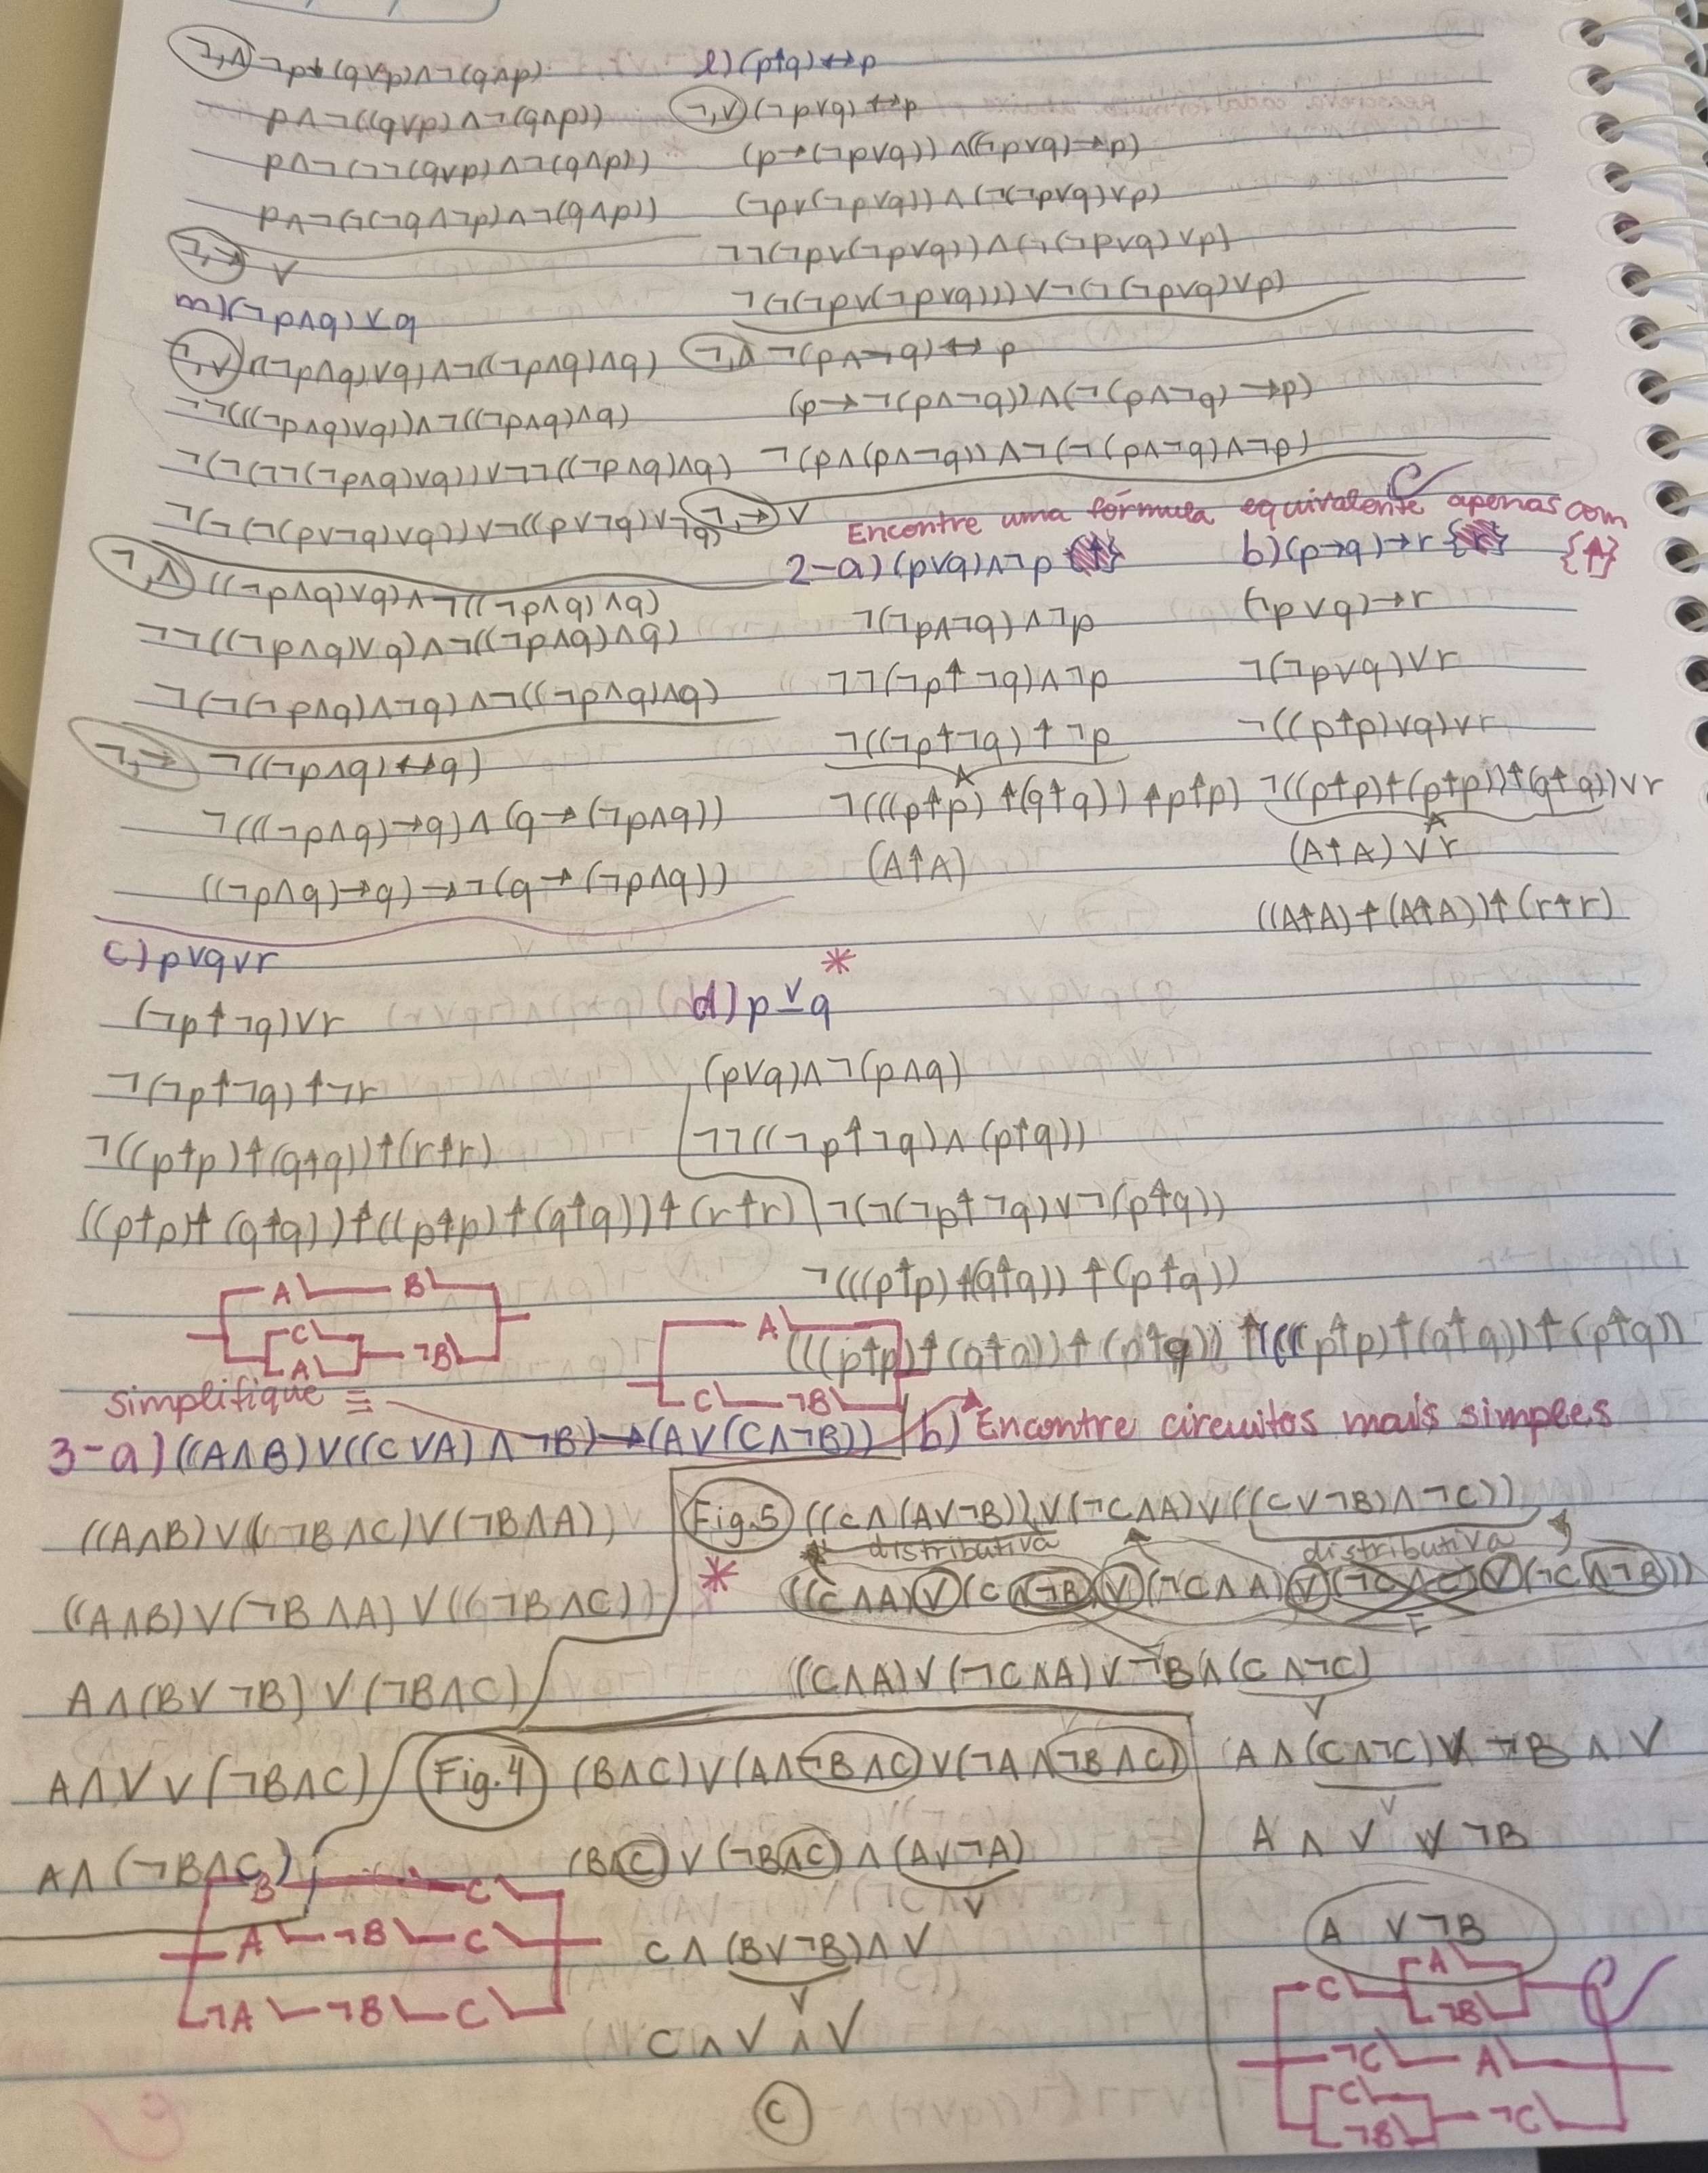 ¬,∧ ¬p→(q∨p)∧¬(q∧p)
p∧¬((q∨p)∧¬(q∧p))
p∧¬(¬¬(q∨p)∧¬(q∧p))
p∧¬(¬(¬q∧¬p)∧¬(q∧p))
¬,→ V
m)(¬p∧q)⊻q
¬,∨ ((¬p∧q)∨q)∧¬((¬p∧q)∧q)
¬¬(((¬p∧q)∨q))∧¬((¬p∧q)∧q)
¬(¬(¬¬(¬p∧q)∨q))∨¬¬((¬p∧q)∧q)
¬(¬(¬(p∨¬q)∨q))∨¬((p∨¬q)∨¬q)
¬,∧ ((¬p∧q)∨q)∧¬((¬p∧q)∧q)
¬¬((¬p∧q)∨q)∧¬((¬p∧q)∧q)
¬(¬(¬p∧q)∧¬q)∧¬((¬p∧q)∧q)
¬,→ ¬((¬p∧q)↔q)
¬(((¬p∧q)→q)∧(q→(¬p∧q))
((¬p∧q)→q)→¬(q→(¬p∧q))
l)(p↑q)↔p
¬,∨ (¬p∨q)↔p
(p→(¬p∨q))∧((¬p∨q)→p)
(¬p∨(¬p∨q))∧(¬(¬p∨q)∨p)
¬¬(¬p∨(¬p∨q))∧(¬(¬p∨q)∨p)
¬(¬(¬p∨(¬p∨q)))∨¬(¬(¬p∨q)∨p)
¬,∧ ¬(p∧¬q)↔p
(p→¬(p∧¬q))∧(¬(p∧¬q)→p)
¬(p∧(p∧¬q))∧¬(¬(p∧¬q)∧¬p)
¬,→ V
Encontre uma fórmula equivalente apenas com {↑}
2-a)(p∨q)∧¬p
¬(¬p∧¬q)∧¬p
¬¬(¬p↑¬q)∧¬p
¬((¬p↑¬q)↑¬p
A
¬(((p↑p)↑(q↑q))↑p↑p)
(A↑A)
b)(p→q)→r
(¬p∨q)→r
¬(¬p∨q)∨r
¬((p↑p)∨q)∨r
¬((p↑p)↑(p↑p))↑(q↑q))∨r
A
(A↑A)∨r
((A↑A)↑(A↑A))↑(r↑r)
c)p∨q∨r
(¬p↑¬q)∨r
¬(¬p↑¬q)↑¬r
¬((p↑p)↑(q↑q))↑(r↑r)
((p↑p)↑(q↑q))↑((p↑p)↑(q↑q))↑(r↑r)
*
d)p⊻q
(p∨q)∧¬(p∧q)
¬¬((¬p↑¬q)∧(p↑q))
¬(¬(¬p↑¬q)∨¬(p↑q))
¬(((p↑p)↑(q↑q))↑(p↑q))
(((p↑p)↑(q↑q))↑(p↑q))↑(((p↑p)↑(q↑q))↑(p↑q))
A B
C
A ¬B
A
C ¬B
simplifique ≡
3-a)((A∧B)∨((C∨A)∧¬B)→(A∨(C∧¬B))
((A∧B)∨((¬B∧C)∨(¬B∧A))
((A∧B)∨(¬B∧A)∨((¬B∧C))
A∧(B∨¬B)∨(¬B∧C)
A∧V∨(¬B∧C)
A∧(¬B∧C)
b) Encontre circuitos mais simples
Fig.5 ((C∧(A∨¬B))∨(¬C∧A)∨((C∨¬B)∧¬C))
distributiva distributiva
* ((C∧A)∨(C∧¬B)∨(¬C∧A)∨(¬C∧C)∨(¬C∧¬B))
F
((C∧A)∨(¬C∧A)∨¬B∧(C∧¬C)
V
A∧(C∧¬C)∨¬B∧V
V
A∧V∨¬B
A∨¬B
Fig.4 (B∧C)∨(A∧¬B∧C)∨(¬A∧¬B∧C)
(B∧C)∨(¬B∧C)∧(A∨¬A)
V
C∧(B∨¬B)∧V
V
C∧V∧V
C
B C
A ¬B C
¬A ¬B C
A
C
¬B
¬C A
C
¬B ¬C